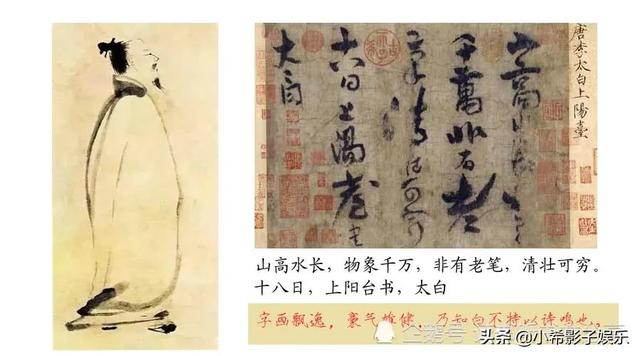 唐李太白上陽臺
山高水長物象
千萬非有老
筆清壯可窮
十八日上陽臺書
太白
山高水长，物象千万，非有老笔，清壮可穷。
十八日，上阳台书，太白
字画飘逸，豪气雄健，乃知白不持以诗鸣也。
企鹅号
头条 @小希影子娱乐